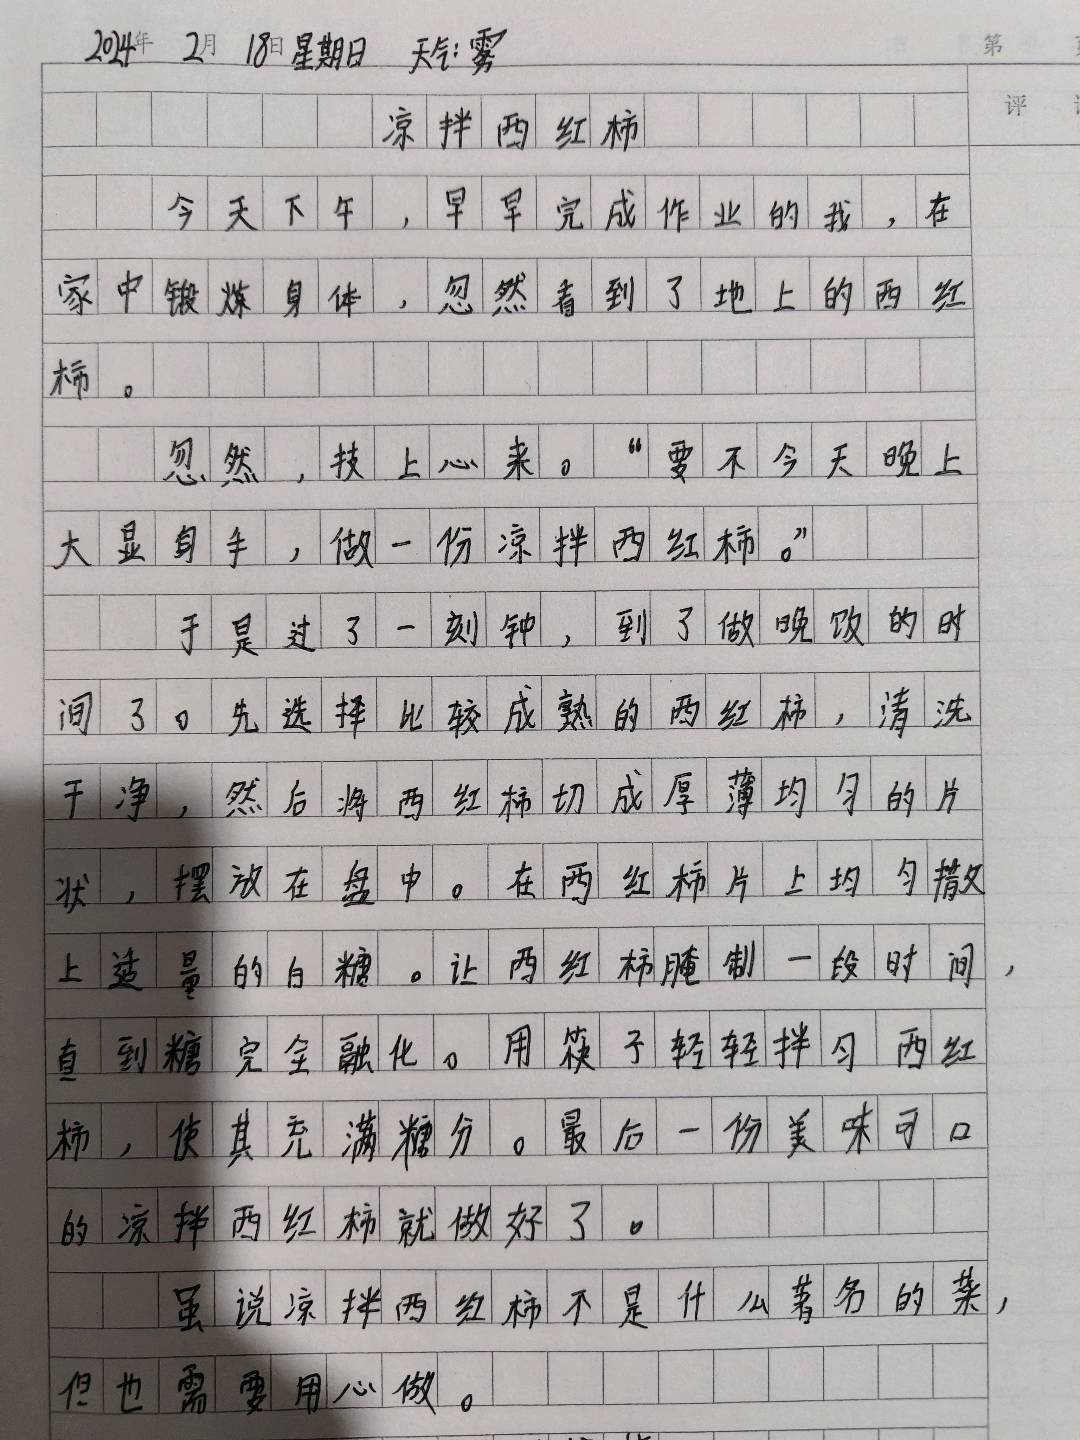 2024年 2月 18日 星期日 天气:雾
第
评
凉拌西红柿
今天下午,早早完成作业的我,在
家中锻炼身体,忽然看到了地上的西红
柿。
忽然,技上心来。“要不今天晚上
大显身手,做一份凉拌西红柿。”
于是过了一刻钟,到了做晚饭的时
间了。先选择比较成熟的西红柿,清洗
干净,然后将西红柿切成厚薄均匀的片
状,摆放在盘中。在西红柿片上均匀撒
上适量的白糖。让西红柿腌制一段时间,
直到糖完全融化。用筷子轻轻拌匀西红
柿,使其充满糖分。最后一份美味可口
的凉拌西红柿就做好了。
虽说凉拌西红柿不是什么著名的菜,
但也需要用心做。